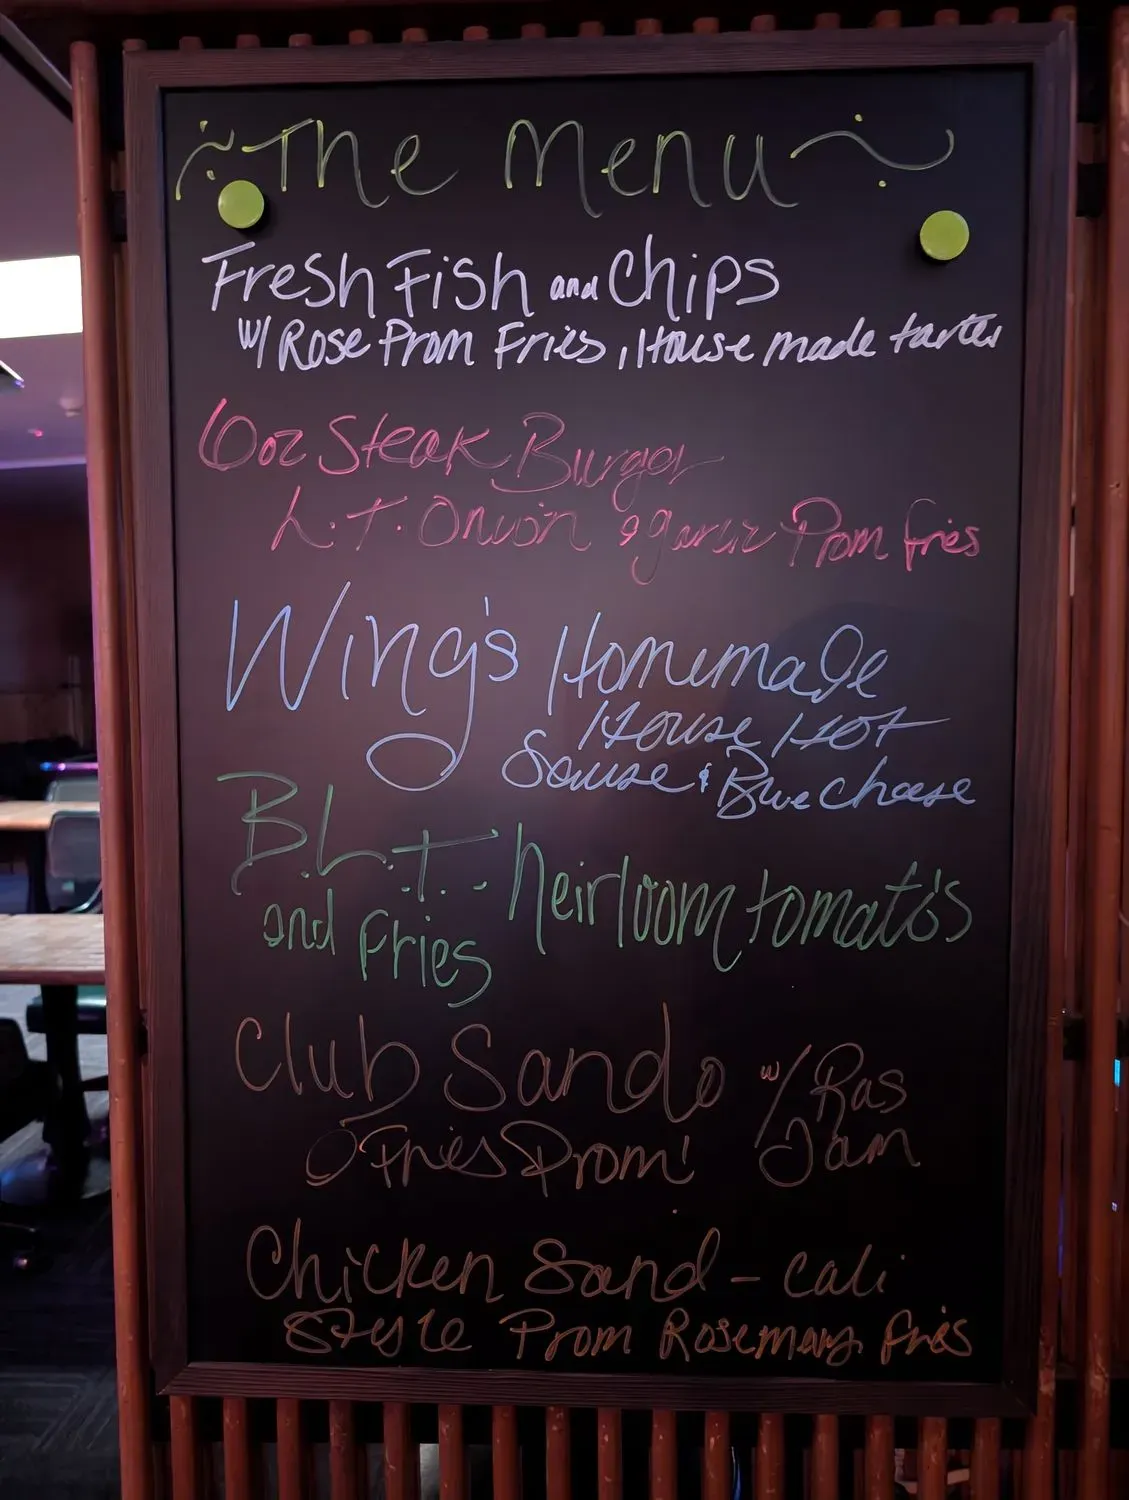 The Menu
Fresh Fish and Chips
w/ Rose Prom Fries, House made tarter
6oz Steak Burger
L.T. Onion & garlic Prom fries
Wing's Homemade
House Hot
Sause & Blue cheese
B.L.T. - heirloom tomato's
and Fries
Club Sando w/ Ras
Jam
Fries Prom!
Chicken Sand - Cali
Style Prom Rosemary fries